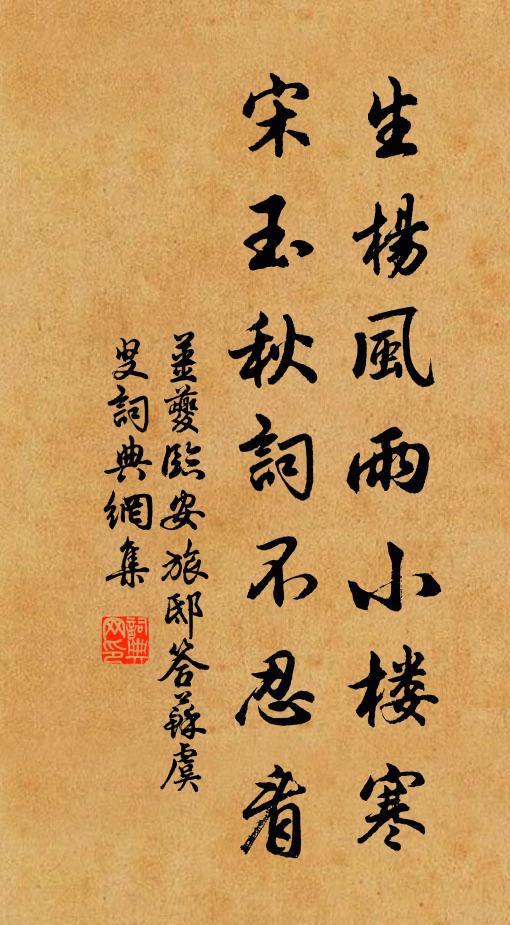 生楊風雨小楼寒
宋玉秋詞不忍看
姜夔臨安旅邸答蘇虞
叟詞典網集
詞典网印